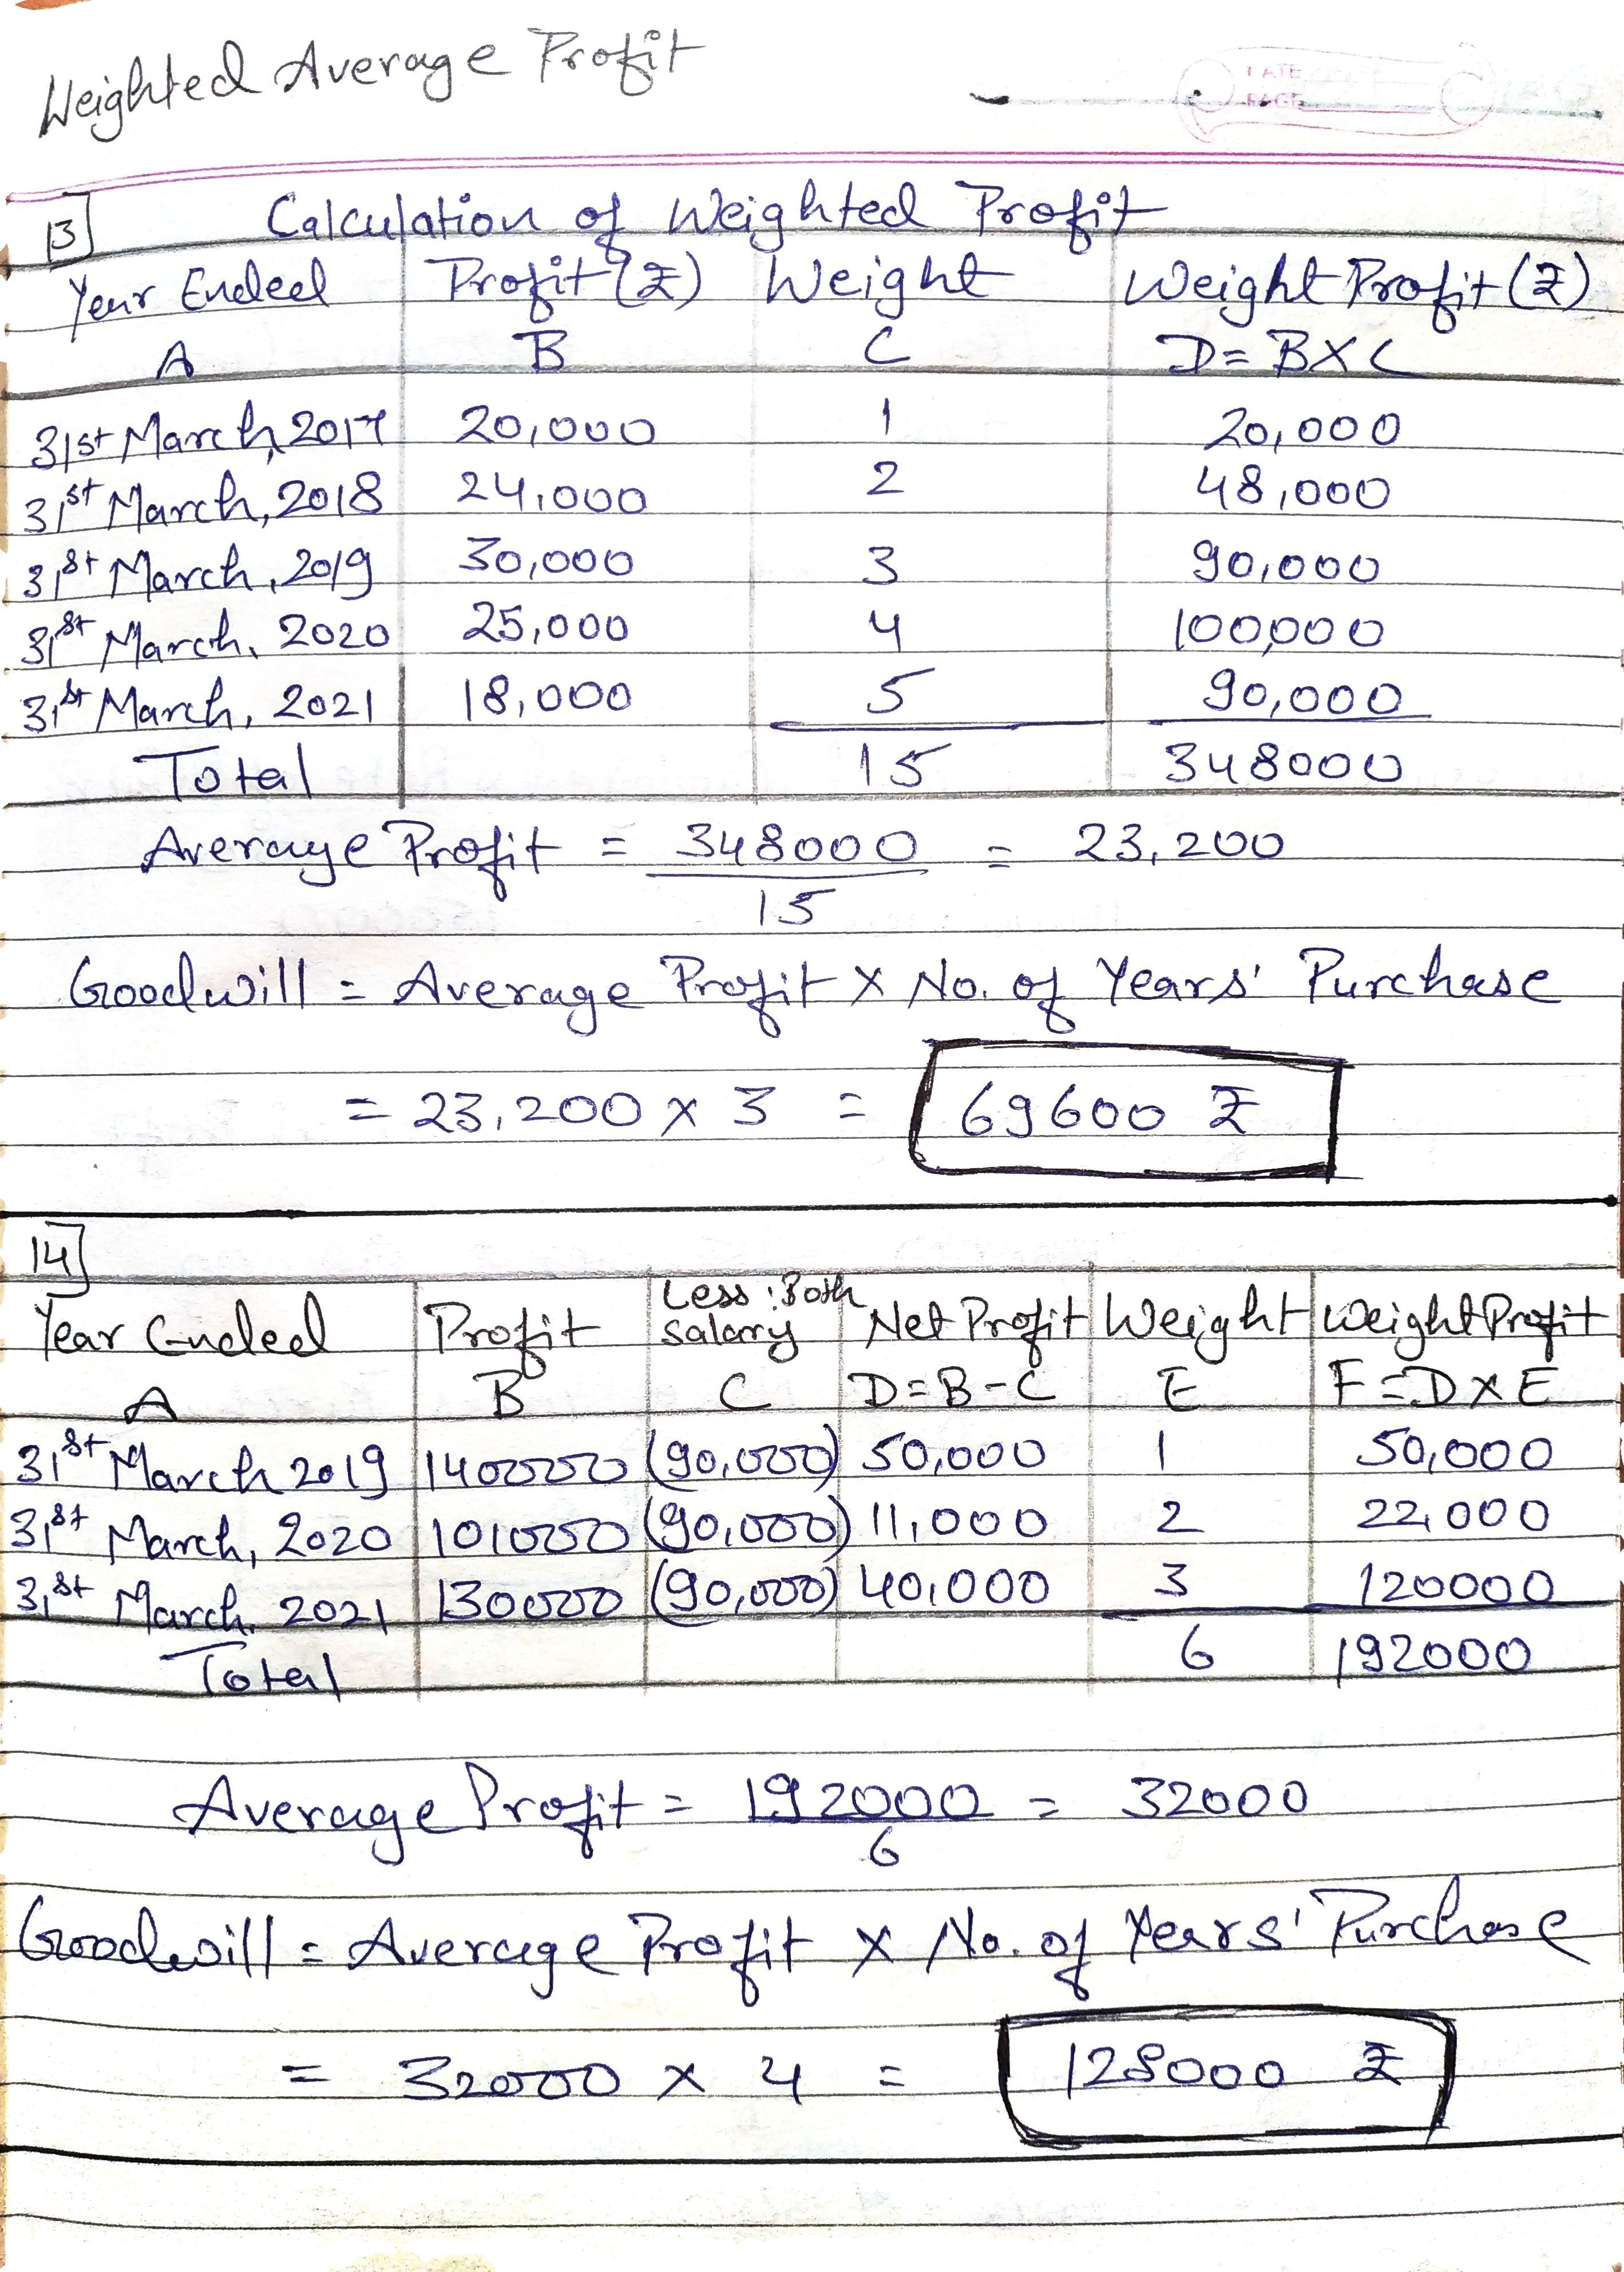 Weighted Average Profit
DATE
PAGE
13] Calculation of Weighted Profit
Year Ended Profit (₹) Weight Weight Profit (₹)
A B C D = B X C
31st March, 2017 20,000 1 20,000
31st March, 2018 24,000 2 48,000
31st March, 2019 30,000 3 90,000
31st March, 2020 25,000 4 100,000
31st March, 2021 18,000 5 90,000
Total 15 348000
Average Profit = 348000 = 23,200
15
Goodwill = Average Profit X No. of Years' Purchase
= 23,200 x 3 = 69600 ₹
14]
Less : Both
Year Ended Profit Salary Net Profit Weight Weight Profit
A B C D = B - C E F = D X E
31st March 2019 140000 (90,000) 50,000 1 50,000
31st March, 2020 101000 (90,000) 11,000 2 22,000
31st March, 2021 130000 (90,000) 40,000 3 120000
Total 6 192000
Average Profit = 192000 = 32000
6
Goodwill = Average Profit X No. of Years' Purchase
= 32000 x 4 = 128000 ₹